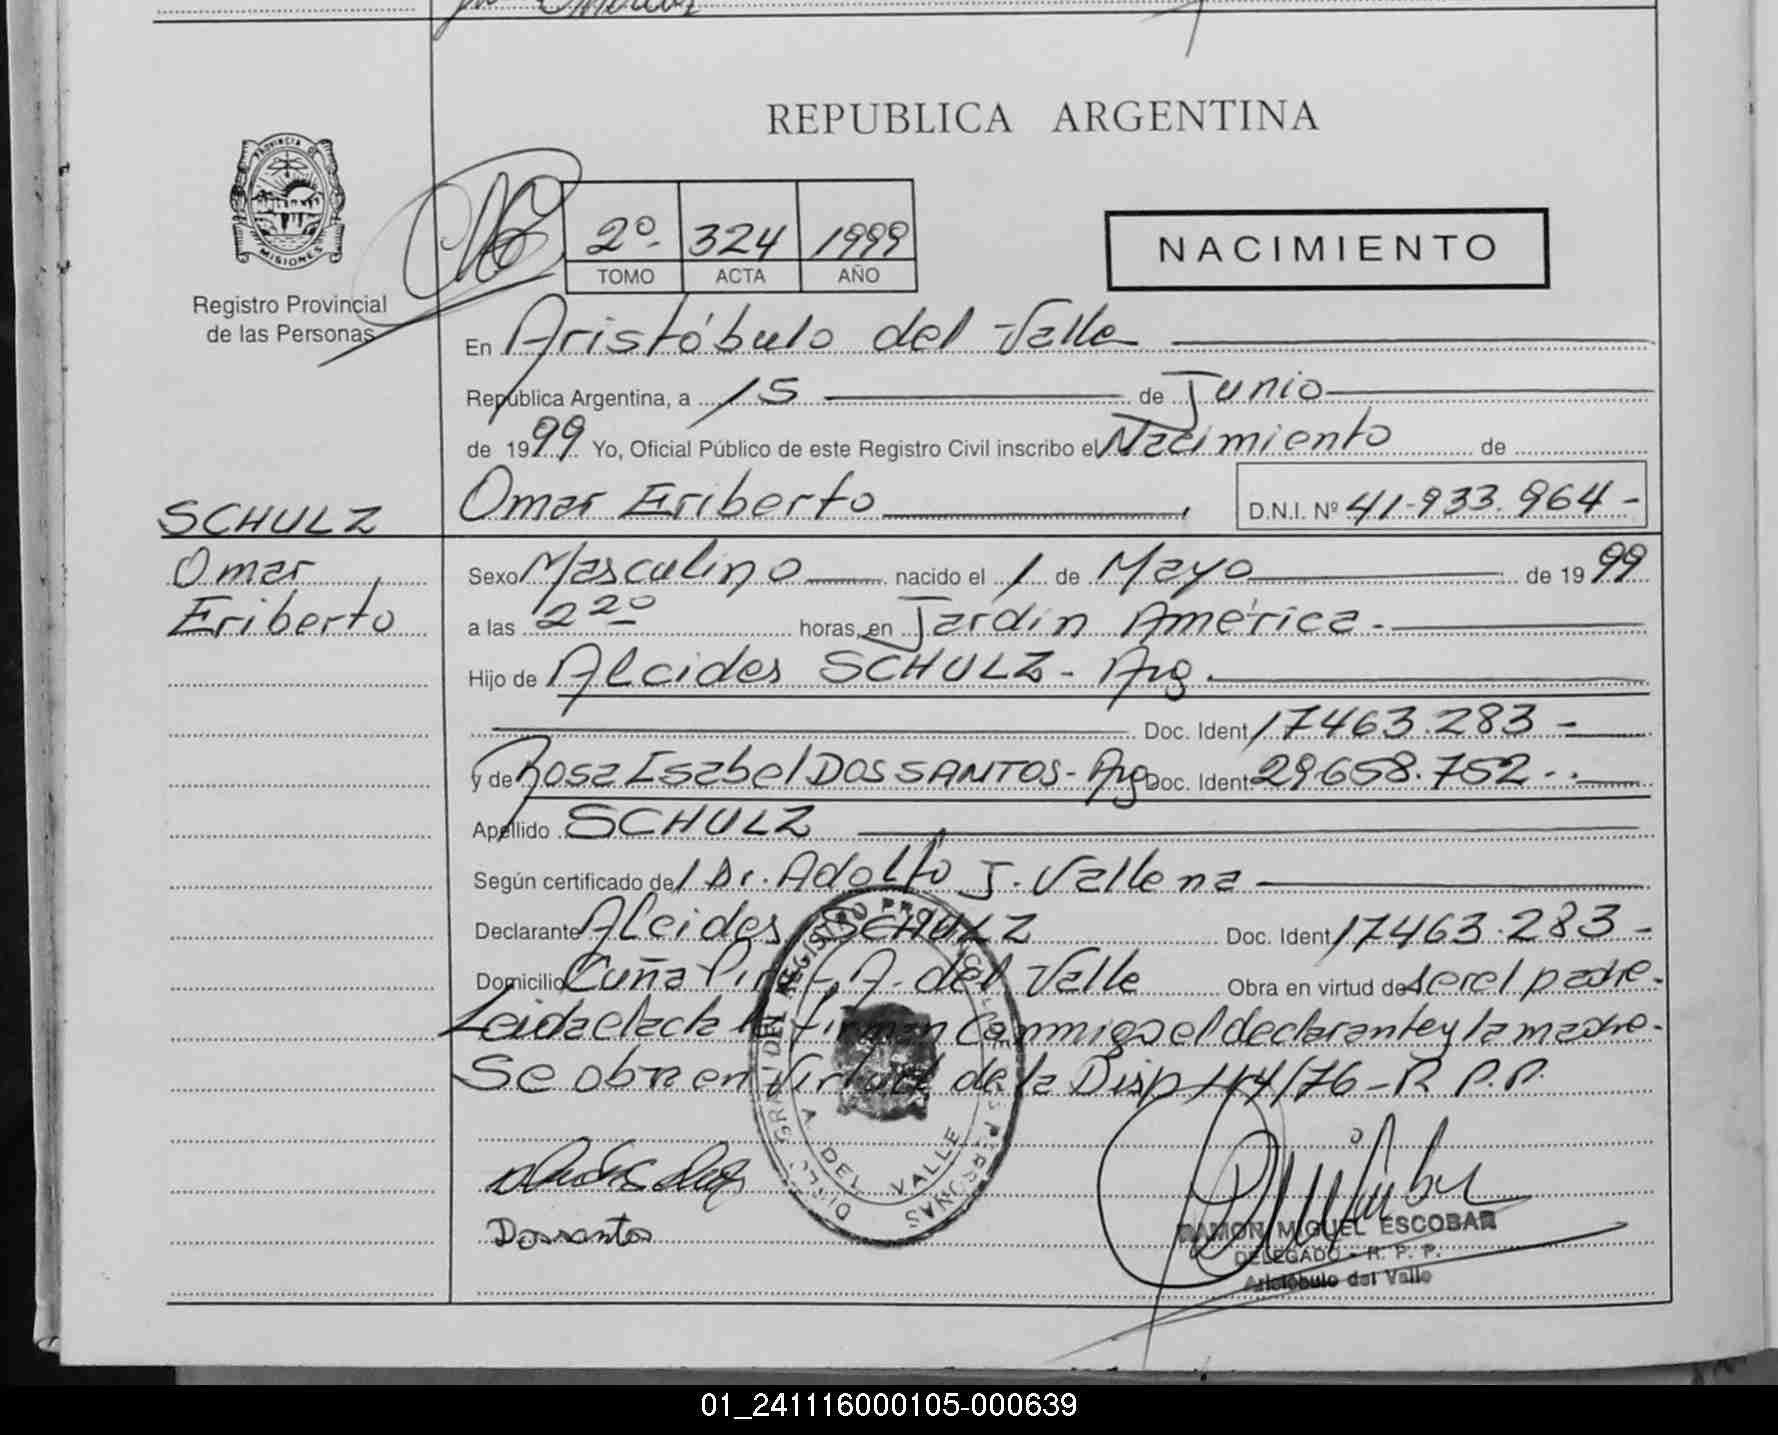 REPUBLICA ARGENTINA
PROVINCIA DE
MISIONES
Registro Provincial
de las Personas
2º- 324 1999
TOMO ACTA AÑO
NACIMIENTO
En Aristóbulo del Valle
República Argentina, a 15 de Junio
de 1999 Yo, Oficial Público de este Registro Civil inscribo el Nacimiento de
SCHULZ
Omar Eriberto
Omar Eriberto, D.N.I. Nº 41-933.964-
Sexo Masculino nacido el 1 de Mayo de 1999
a las 2 20 horas, en Jardín América.-
Hijo de Alcides SCHULZ - Arg.
Doc. Ident. 17463.283-
y de Rosa Isabel DOS SANTOS - Arg Doc. Ident. 29658.752-.
Apellido SCHULZ
Según certificado del Dr. Adolfo J. Vallena
Declarante Alcides SCHULZ Doc. Ident. 17463.283-
Domicilio Cuña Pirú A. del Valle Obra en virtud de ser el padre.
Leida el acta la firman Conmigo el declarante y la madre.
Se obra en Virtud de la Disp 114/76-R.P.P.
A DEL VALLE
Dossantos
RAMON MIGUEL ESCOBAR
DELEGADO - R. P. P.
Aristóbulo del Valle
01_241116000105-000639